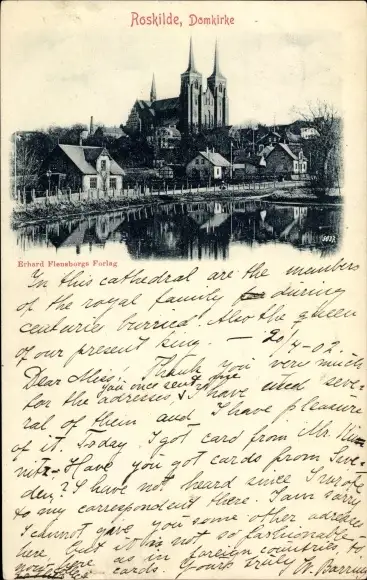 Roskilde, Domkirke
6037
Erhard Flensborgs Forlag
In this cathedral are the members
of the royal family during
centuries burried. Also the queen
of our present king. — 20/4-02. —
Dear Miss! Thank you very much
for the adresses you once sent me. I have used seve-
ral of them and I have pleasure
of it. Today I got card from Mr.
Have you got cards from Swe-
den? I have not heard since I wrote
to my correspondent there. I am sorry
I cannot gave you some other adresses
here, but it is not so fashionable
as in foreign countries, to
cards. Yours truly